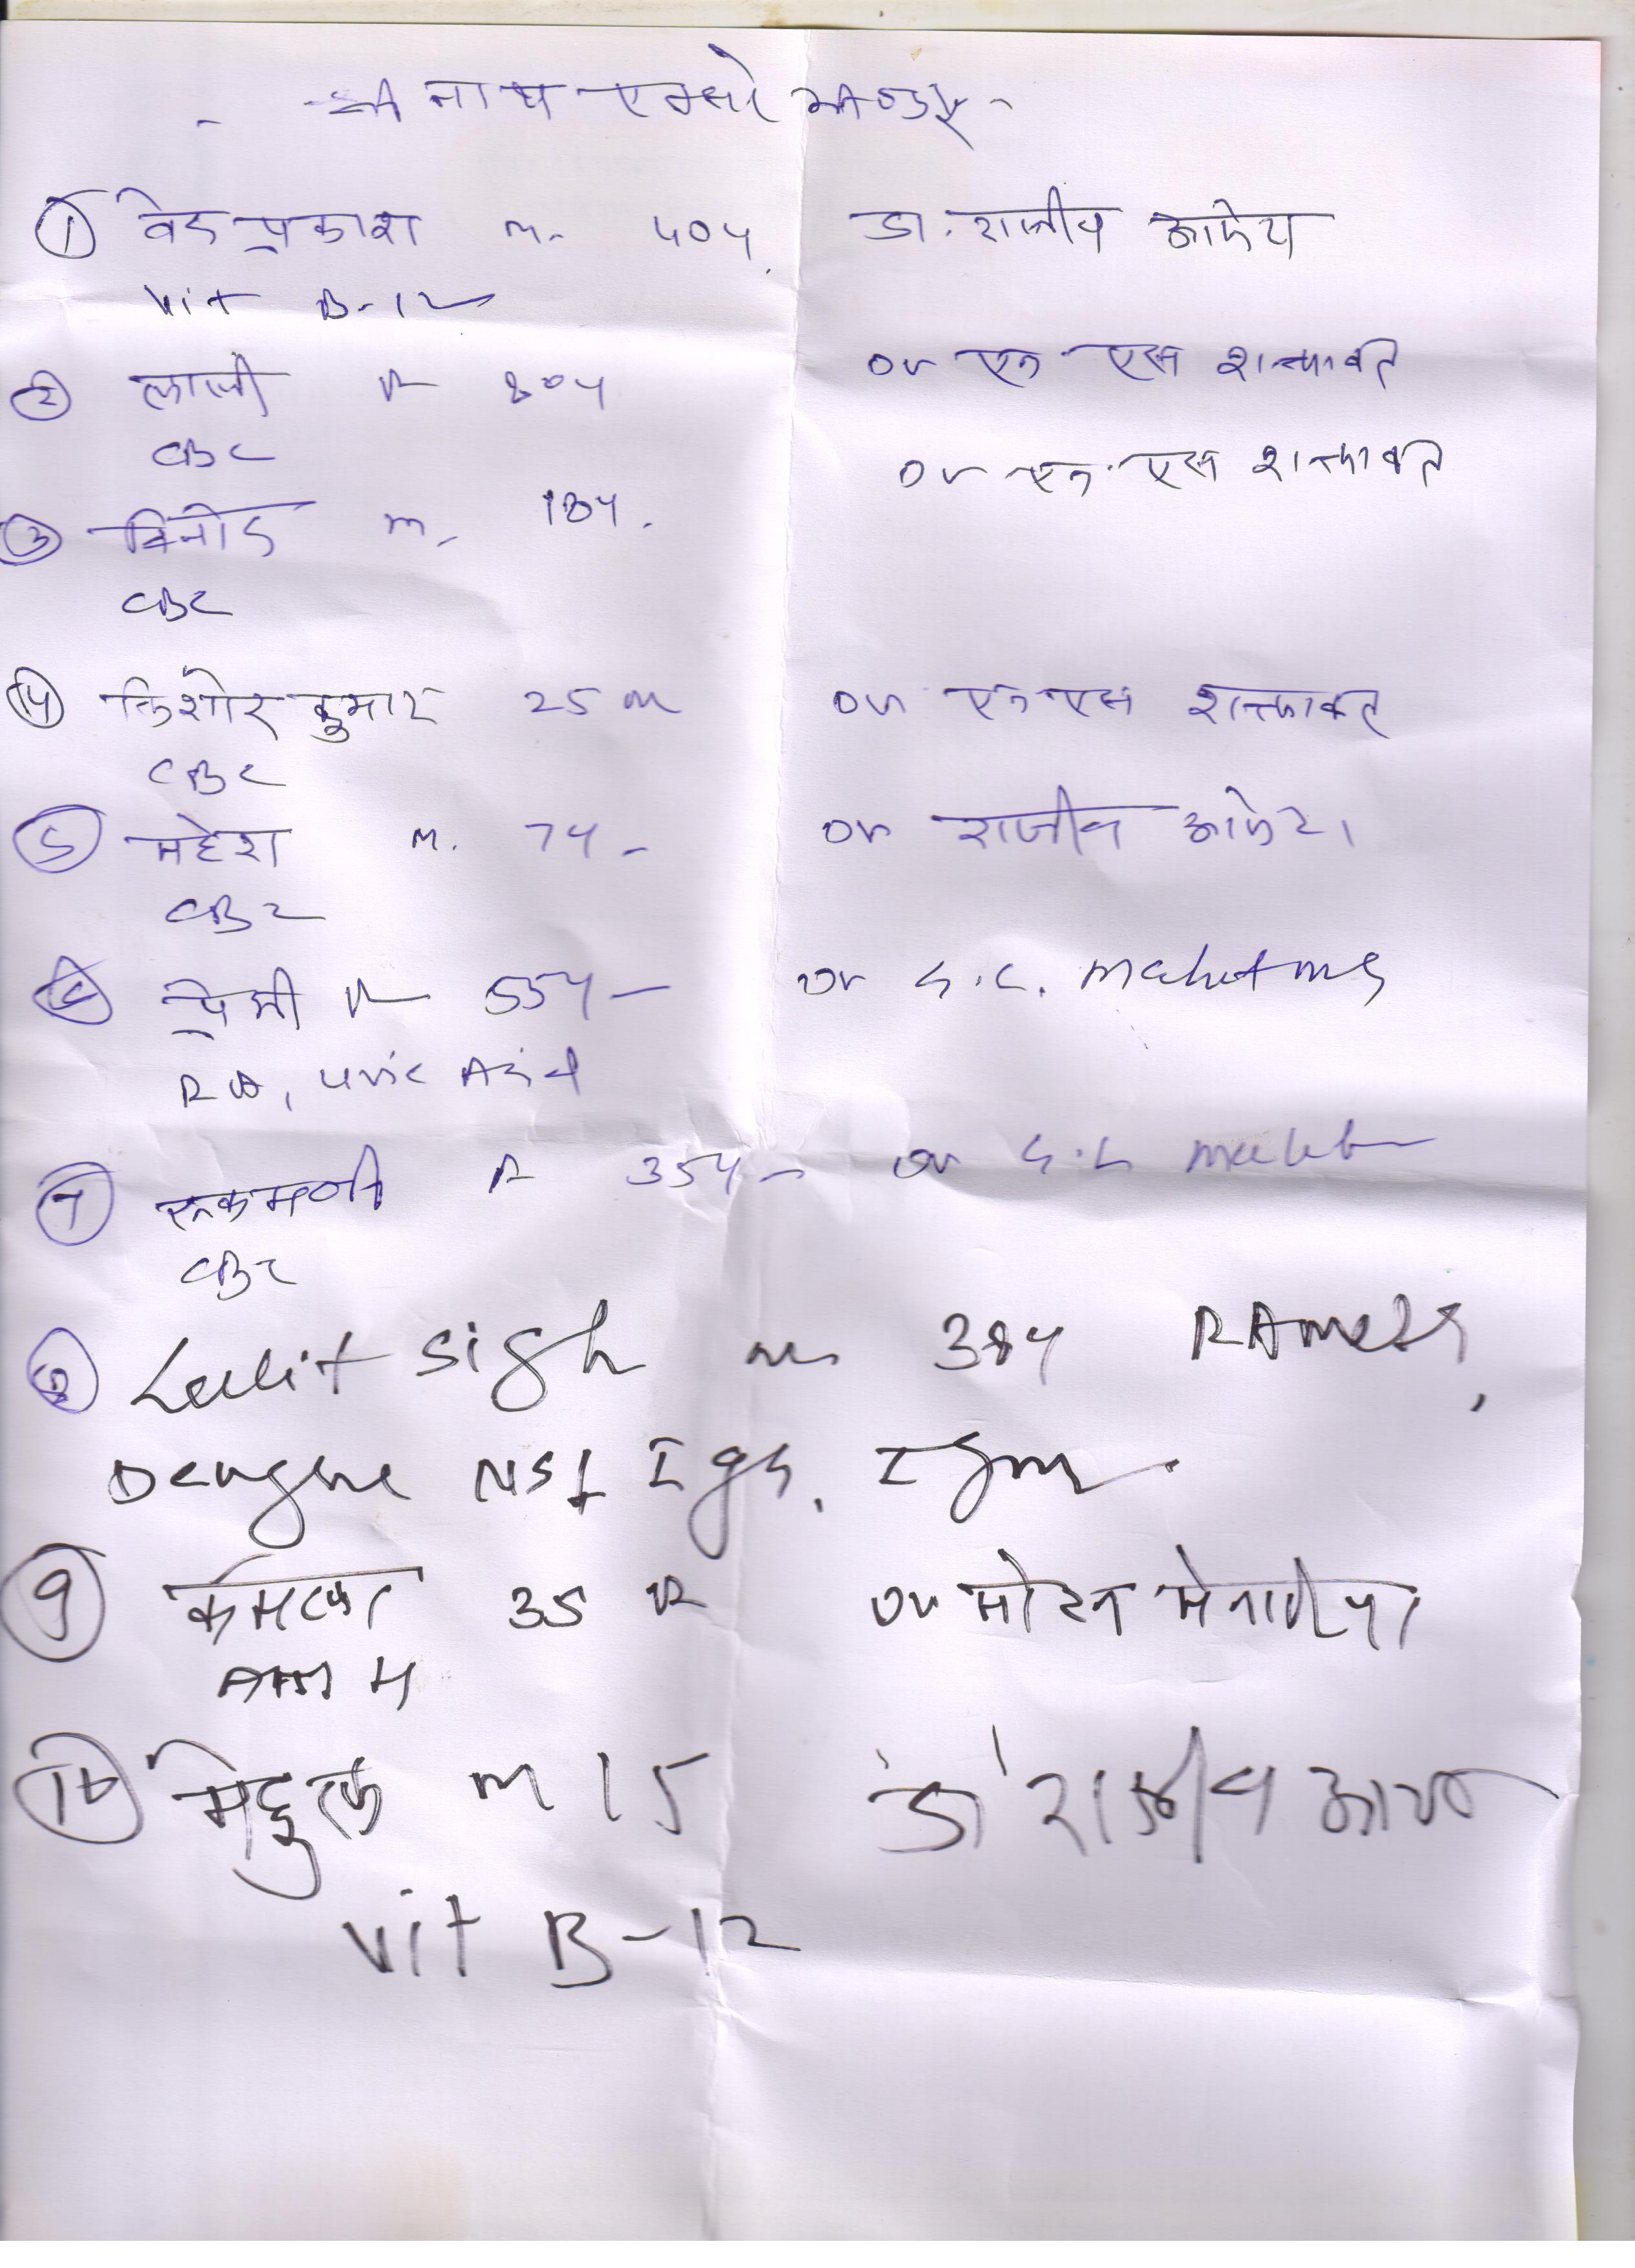 श्री नाथ एक्सरे भीण्डर
① वेद प्रकाश m. 40y. डा. राजीव
Vit B-12
② लाली F 80y Dr एन एस शक्तावत
CBC
③ विनोद m. 18y. Dr एन. एस शक्तावत
CBC
④ किशोर कुमार 25 m Dr एन एस शक्तावत
CBC
⑤ महेश m. 7y- Dr राजीव
CBC
⑥ प्रेमी F 55y- Dr G.C.
RA, Uric Acid
⑦ रुकमणी F 35y- Dr G.C
CBC
⑧ Lalit Sigh m 38y Ramesh
Dengue NS1 IgG, Igm.
⑨ कमला 35 F Dr मोहन मेनारीया
AMH
⑩ m 15 डा राजीव
Vit B-12